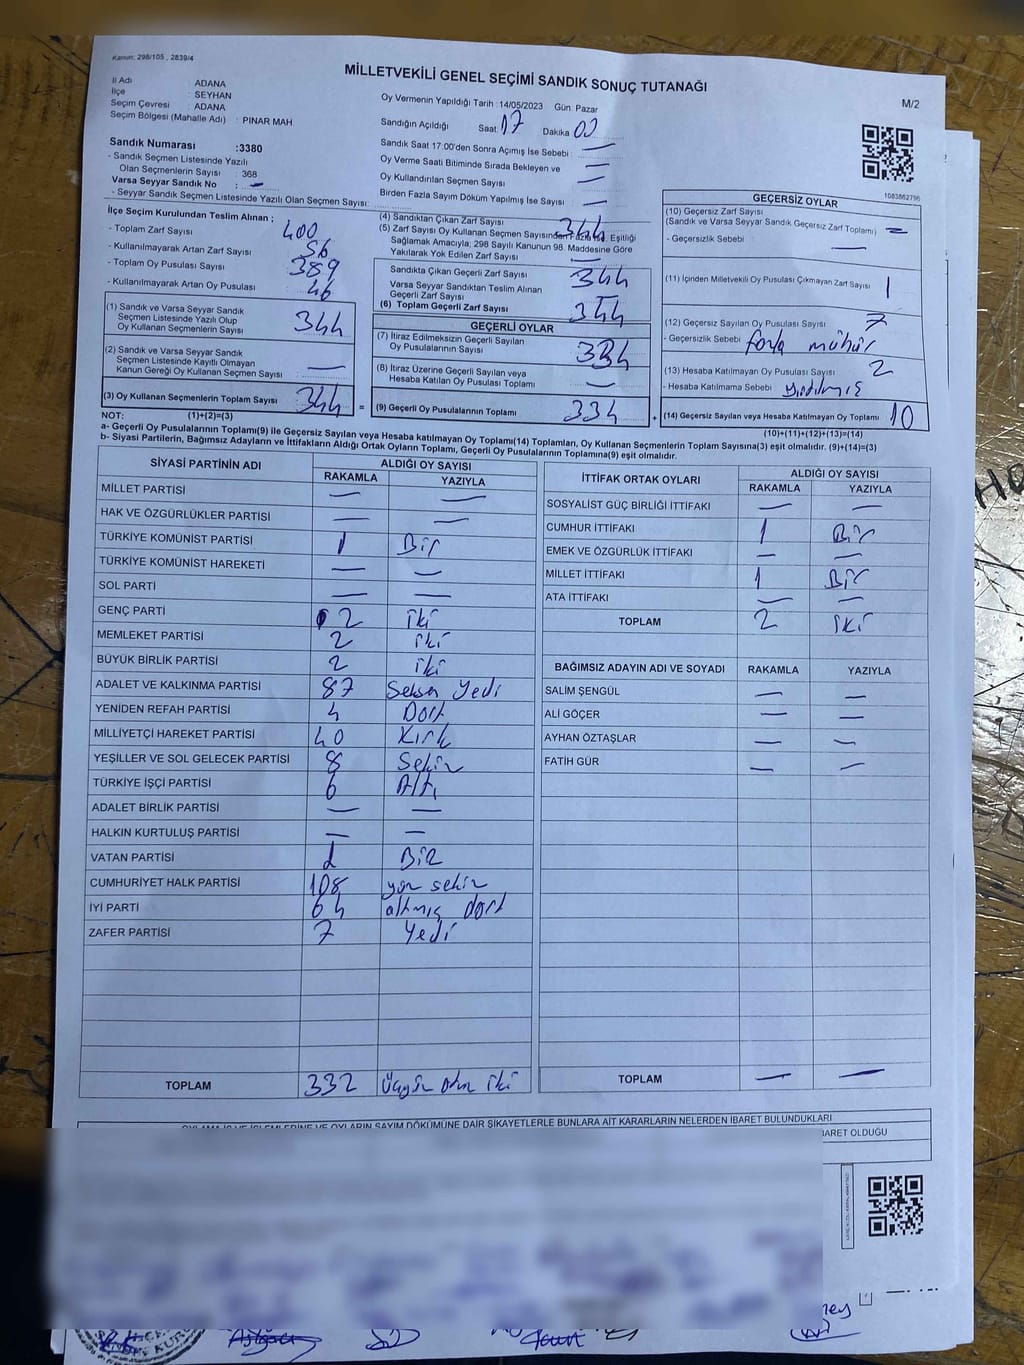 Kanun: 298/105 , 2839/4
MİLLETVEKİLİ GENEL SEÇİMİ SANDIK SONUÇ TUTANAĞI
M/2
İl Adı : ADANA
İlçe : SEYHAN
Seçim Çevresi : ADANA
Seçim Bölgesi (Mahalle Adı) : PINAR MAH
Oy Vermenin Yapıldığı Tarih : 14/05/2023 Gün Pazar
Sandığın Açıldığı Saat 17 Dakika 00
Sandık Saat 17:00'den Sonra Açımış İse Sebebi : —
Oy Verme Saati Bitiminde Sırada Bekleyen ve
Oy Kullandırılan Seçmen Sayısı —
Birden Fazla Sayım Döküm Yapılmış İse Sayısı —
Sandık Numarası :3380
- Sandık Seçmen Listesinde Yazılı
Olan Seçmenlerin Sayısı : 368
Varsa Seyyar Sandık No : —
- Seyyar Sandık Seçmen Listesinde Yazılı Olan Seçmen Sayısı:
İlçe Seçim Kurulundan Teslim Alınan ;
- Toplam Zarf Sayısı 400
- Kullanılmayarak Artan Zarf Sayısı : 56
- Toplam Oy Pusulası Sayısı : 389
- Kullanılmayarak Artan Oy Pusulası : 46
(1) Sandık ve Varsa Seyyar Sandık
Seçmen Listesinde Yazılı Olup
Oy Kullanan Seçmenlerin Sayısı 344
(2) Sandık ve Varsa Seyyar Sandık
Seçmen Listesinde Kayıtlı Olmayan
Kanun Gereği Oy Kullanan Seçmen Sayısı —
(3) Oy Kullanan Seçmenlerin Toplam Sayısı 344
(4) Sandıktan Çıkan Zarf Sayısı 344
(5) Zarf Sayısı Oy Kullanan Seçmen Sayısından Fazla ise, Eşitliği
Sağlamak Amacıyla; 298 Sayılı Kanunun 98. Maddesine Göre
Yakılarak Yok Edilen Zarf Sayısı —
Sandıkta Çıkan Geçerli Zarf Sayısı 344
Varsa Seyyar Sandıktan Teslim Alınan
Geçerli Zarf Sayısı
(6) Toplam Geçerli Zarf Sayısı 344
GEÇERLİ OYLAR
(7) İtiraz Edilmeksizin Geçerli Sayılan
Oy Pusulalarının Sayısı 334
(8) İtiraz Üzerine Geçerli Sayılan veya
Hesaba Katılan Oy Pusulası Toplamı —
= (9) Geçerli Oy Pusulalarının Toplamı 334
1083862796
GEÇERSİZ OYLAR
(10) Geçersiz Zarf Sayısı
(Sandık ve Varsa Seyyar Sandık Geçersiz Zarf Toplamı) —
- Geçersizlik Sebebi : —
(11) İçinden Milletvekili Oy Pusulası Çıkmayan Zarf Sayısı 1
(12) Geçersiz Sayılan Oy Pusulası Sayısı 7
- Geçersizlik Sebebi fazla mühür
(13) Hesaba Katılmayan Oy Pusulası Sayısı 2
- Hesaba Katılmama Sebebi : yırtılmış
+ (14) Geçersiz Sayılan veya Hesaba Katılmayan Oy Toplamı 10
NOT: (1)+(2)=(3)
(10)+(11)+(12)+(13)=(14)
a- Geçerli Oy Pusulalarının Toplamı(9) ile Geçersiz Sayılan veya Hesaba katılmayan Oy Toplamı(14) Toplamları, Oy Kullanan Seçmenlerin Toplam Sayısına(3) eşit olmalıdır. (9)+(14)=(3)
b- Siyasi Partilerin, Bağımsız Adayların ve İttifakların Aldığı Ortak Oyların Toplamı, Geçerli Oy Pusulalarının Toplamına(9) eşit olmalıdır.
SİYASİ PARTİNİN ADI ALDIĞI OY SAYISI
RAKAMLA YAZIYLA
MİLLET PARTİSİ — —
HAK VE ÖZGÜRLÜKLER PARTİSİ — —
TÜRKİYE KOMÜNİST PARTİSİ 1 Bir
TÜRKİYE KOMÜNİST HAREKETİ — —
SOL PARTİ — —
GENÇ PARTİ 2 iki
MEMLEKET PARTİSİ 2 iki
BÜYÜK BİRLİK PARTİSİ 2 iki
ADALET VE KALKINMA PARTİSİ 87 Seksen Yedi
YENİDEN REFAH PARTİSİ 4 Dört
MİLLİYETÇİ HAREKET PARTİSİ 40 Kırk
YEŞİLLER VE SOL GELECEK PARTİSİ 8 Sekiz
TÜRKİYE İŞÇİ PARTİSİ 6 Altı
ADALET BİRLİK PARTİSİ — —
HALKIN KURTULUŞ PARTİSİ — —
VATAN PARTİSİ 1 BİR
CUMHURİYET HALK PARTİSİ 108 yüz sekiz
İYİ PARTİ 64 altmış dört
ZAFER PARTİSİ 7 Yedi
TOPLAM 332 Üçyüz otuz iki
İTTİFAK ORTAK OYLARI ALDIĞI OY SAYISI
RAKAMLA YAZIYLA
SOSYALİST GÜÇ BİRLİĞİ İTTİFAKI — —
CUMHUR İTTİFAKI 1 Bir
EMEK VE ÖZGÜRLÜK İTTİFAKI — —
MİLLET İTTİFAKI 1 Bir
ATA İTTİFAKI — —
TOPLAM 2 iki
BAĞIMSIZ ADAYIN ADI VE SOYADI RAKAMLA YAZIYLA
SALİM ŞENGÜL — —
ALİ GÖÇER — —
AYHAN ÖZTAŞLAR — —
FATİH GÜR — —
TOPLAM — —
OYLAMA İŞ VE İŞLEMLERİNE VE OYLARIN SAYIM DÖKÜMÜNE DAİR ŞİKAYETLERLE BUNLARA AİT KARARLARIN NELERDEN İBARET BULUNDUKLARI
İBARET OLDUĞU